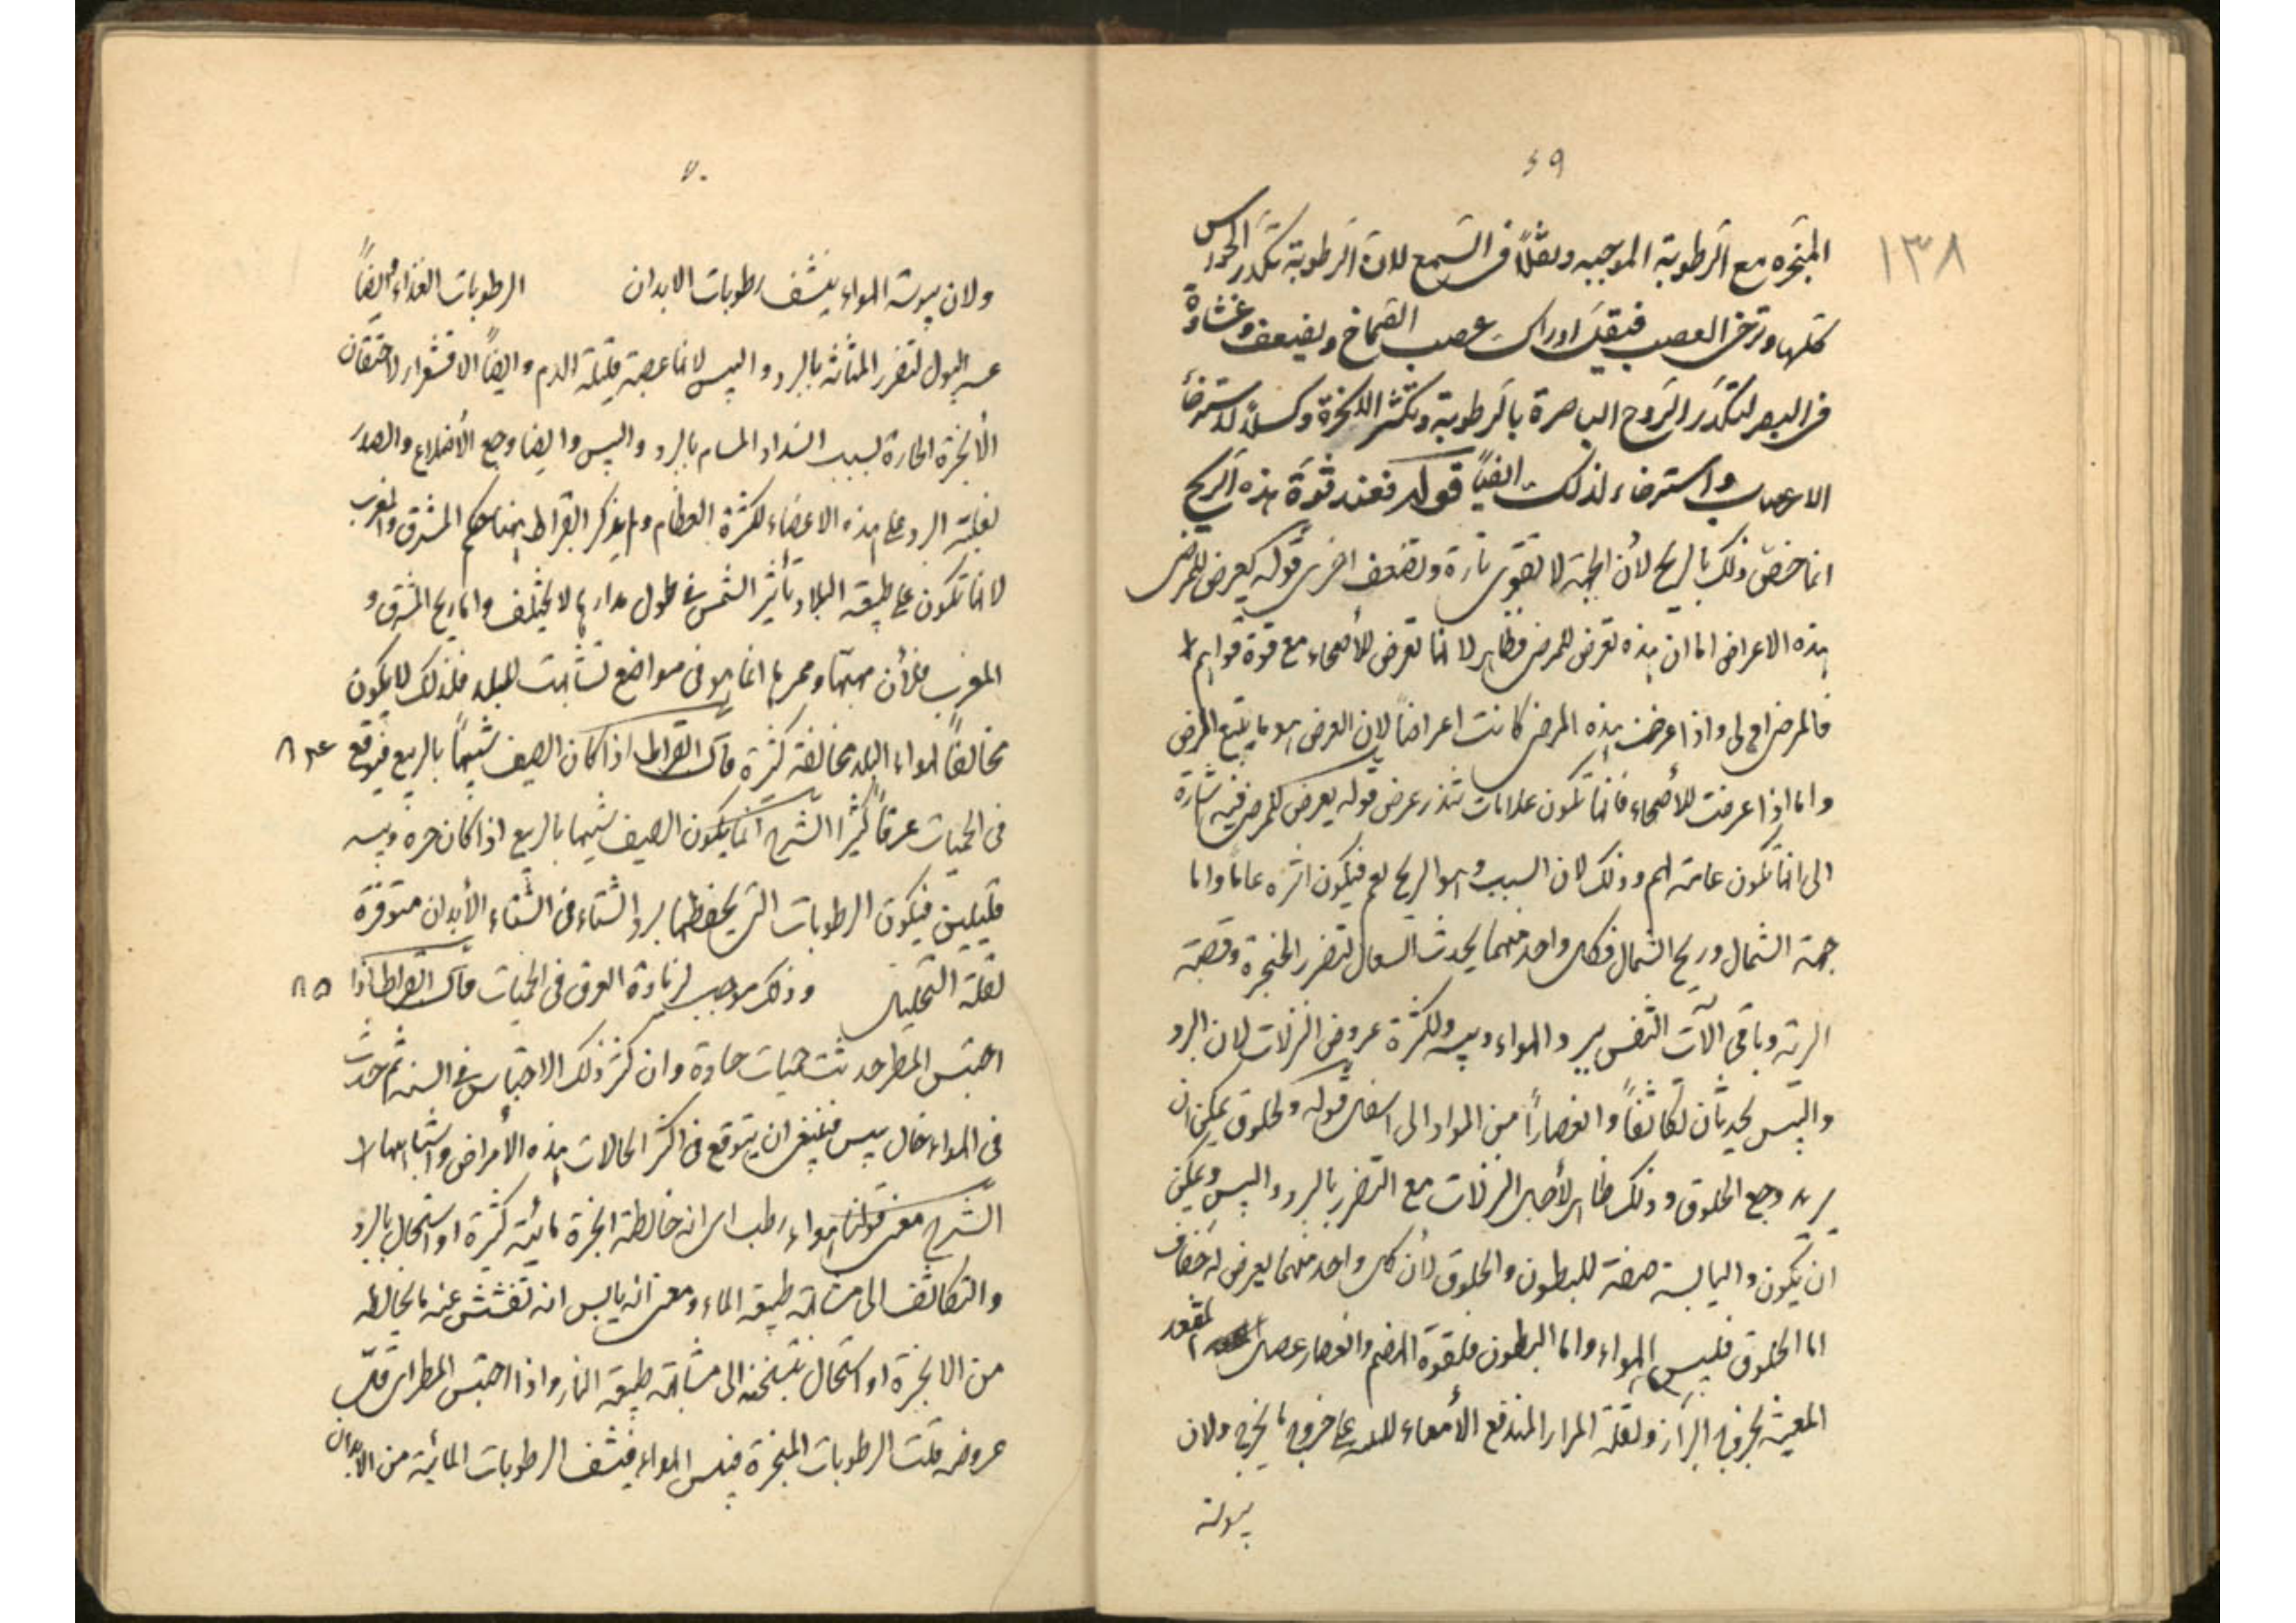 ٦٩
١٣٨
المبخرة مع الرطوبة الموجبه وثقلاً فى السمع لان الرطوبة تكدر الحواس
كلها وترخى العصب فيقل ادراك عصب الصماخ ويضعف وغشاوة
فى البصر لتكدر الروح الباصرة بالرطوبة وتكثر الابخرة وكسلاً لاسترخاء
الاعصاب واسترخاء لذلك ايضاً قوله فعند قوة هذه الريح
انما خص ذلك بالريح لأن الجهة لا تقوى تارة وتضعف اخرى قوله يعرض للمرضى
هذه الاعراض اما ان هذه تعرض للمرضى فظاهر لا انها تعرض للأصحاء مع قوة قواهم
فالمرضى اولى واذا عرضت هذه المرضى كانت اعراضاً لان العرض هو ما يتبع المرض
واما اذا عرضت للأصحاء فانها تكون علامات تنذر عرض قوله يعرض للمرضى فيه اشارة
الى انها تكون عامة لهم وذلك لان السبب وهو الريح يعم فيكون اثره عاماً واما
جهة الشمال وريح الشمال فكل واحد منهما يحدث السعال لتضرر الحنجرة وقصبة
الرئة وباقى آلات التنفس ببرد الهواء ويبسه ولكثرة عروض النزلات لان البرد
واليبس يحدثان تكاثفاً وانعصاراً من المواد الى اسفل قوله والحلوق يمكن ان
يريد وجع الحلوق وذلك ظاهر لأجل النزلات مع التضرر بالبرد واليبس ويمكن
ان يكون واليابسة صفة للبطون والحلوق لأن كل واحد منهما يعرض له جفاف
اما الحلوق فليبس الهواء واما البطون فلقوة الهضم وانعصار عضل المقعد
المعينة بخروج البراز ولقلة المرار المندفع الأمعاء على خروج ما يخرج ولان
يبوسة
٧٠
ولان يبوسة الهواء ينشف رطوبات الابدان الرطوبات الغذاء وايضاً
عسر البول لتضرر المثانة بالبرد واليبس لانها عصبية قليلة الدم وايضاً الاقشعرار لاحتقان
الأبخرة الحارة بسبب انسداد المسام بالبرد واليبس وايضا وجع الأضلاع والصدر
لغلبة البرد على هذه الاعضاء لكثرة العظام ولم يذكر ابقراط هنا حكم المشرق والمغرب
لانها تكون على طبيعة البلاد وتأثير الشمس فى طول مدارها لا يختلف واما ريح المشرق و
المغرب فلأن مهبها وممرها انما هو فى مواضع تشابهت للبلد فلذلك لا يكون
مخالفاً لهواء البلد مخالفة كثيرة قال ابقراط اذا كان الصيف شبيهاً بالربيع فتوقع ٨٤
فى الحميات عرقاً كثيرا الشرح انما يكون الصيف شبيها بالربيع اذا كان حره ويبسه
قليلين فيكون الرطوبات التى يحفظها برد الشتاء فى الشتاء الأبدان متوفرة
لقلة التحليل وذلك موجب لزيادة العرق فى الحميات قال ابقراط اذا ٨٥
احتبس المطر حدثت حميات حادة وان كثر ذلك الاحتباس فى السنة ثم حدث
فى الهواء حال يبس فينبغى ان يتوقع فى اكثر الحالات هذه الأمراض واشباهها
الشرح معنى قولنا هواء رطب اى انه خالطته ابخرة مائية كثيرة او استحال بالبرد
والتكاثف الى مشابهة طبيعة الماء ومعنى انه يابس انه تفشش عنه ما يخالطه
من الابخرة او استحال بتسخنه الى مشابهة طبيعة النار واذا احتبس المطر اى قل
عروضه قلت الرطوبات المبخرة فيبس الهواء فينشف الرطوبات المائية من الابدان